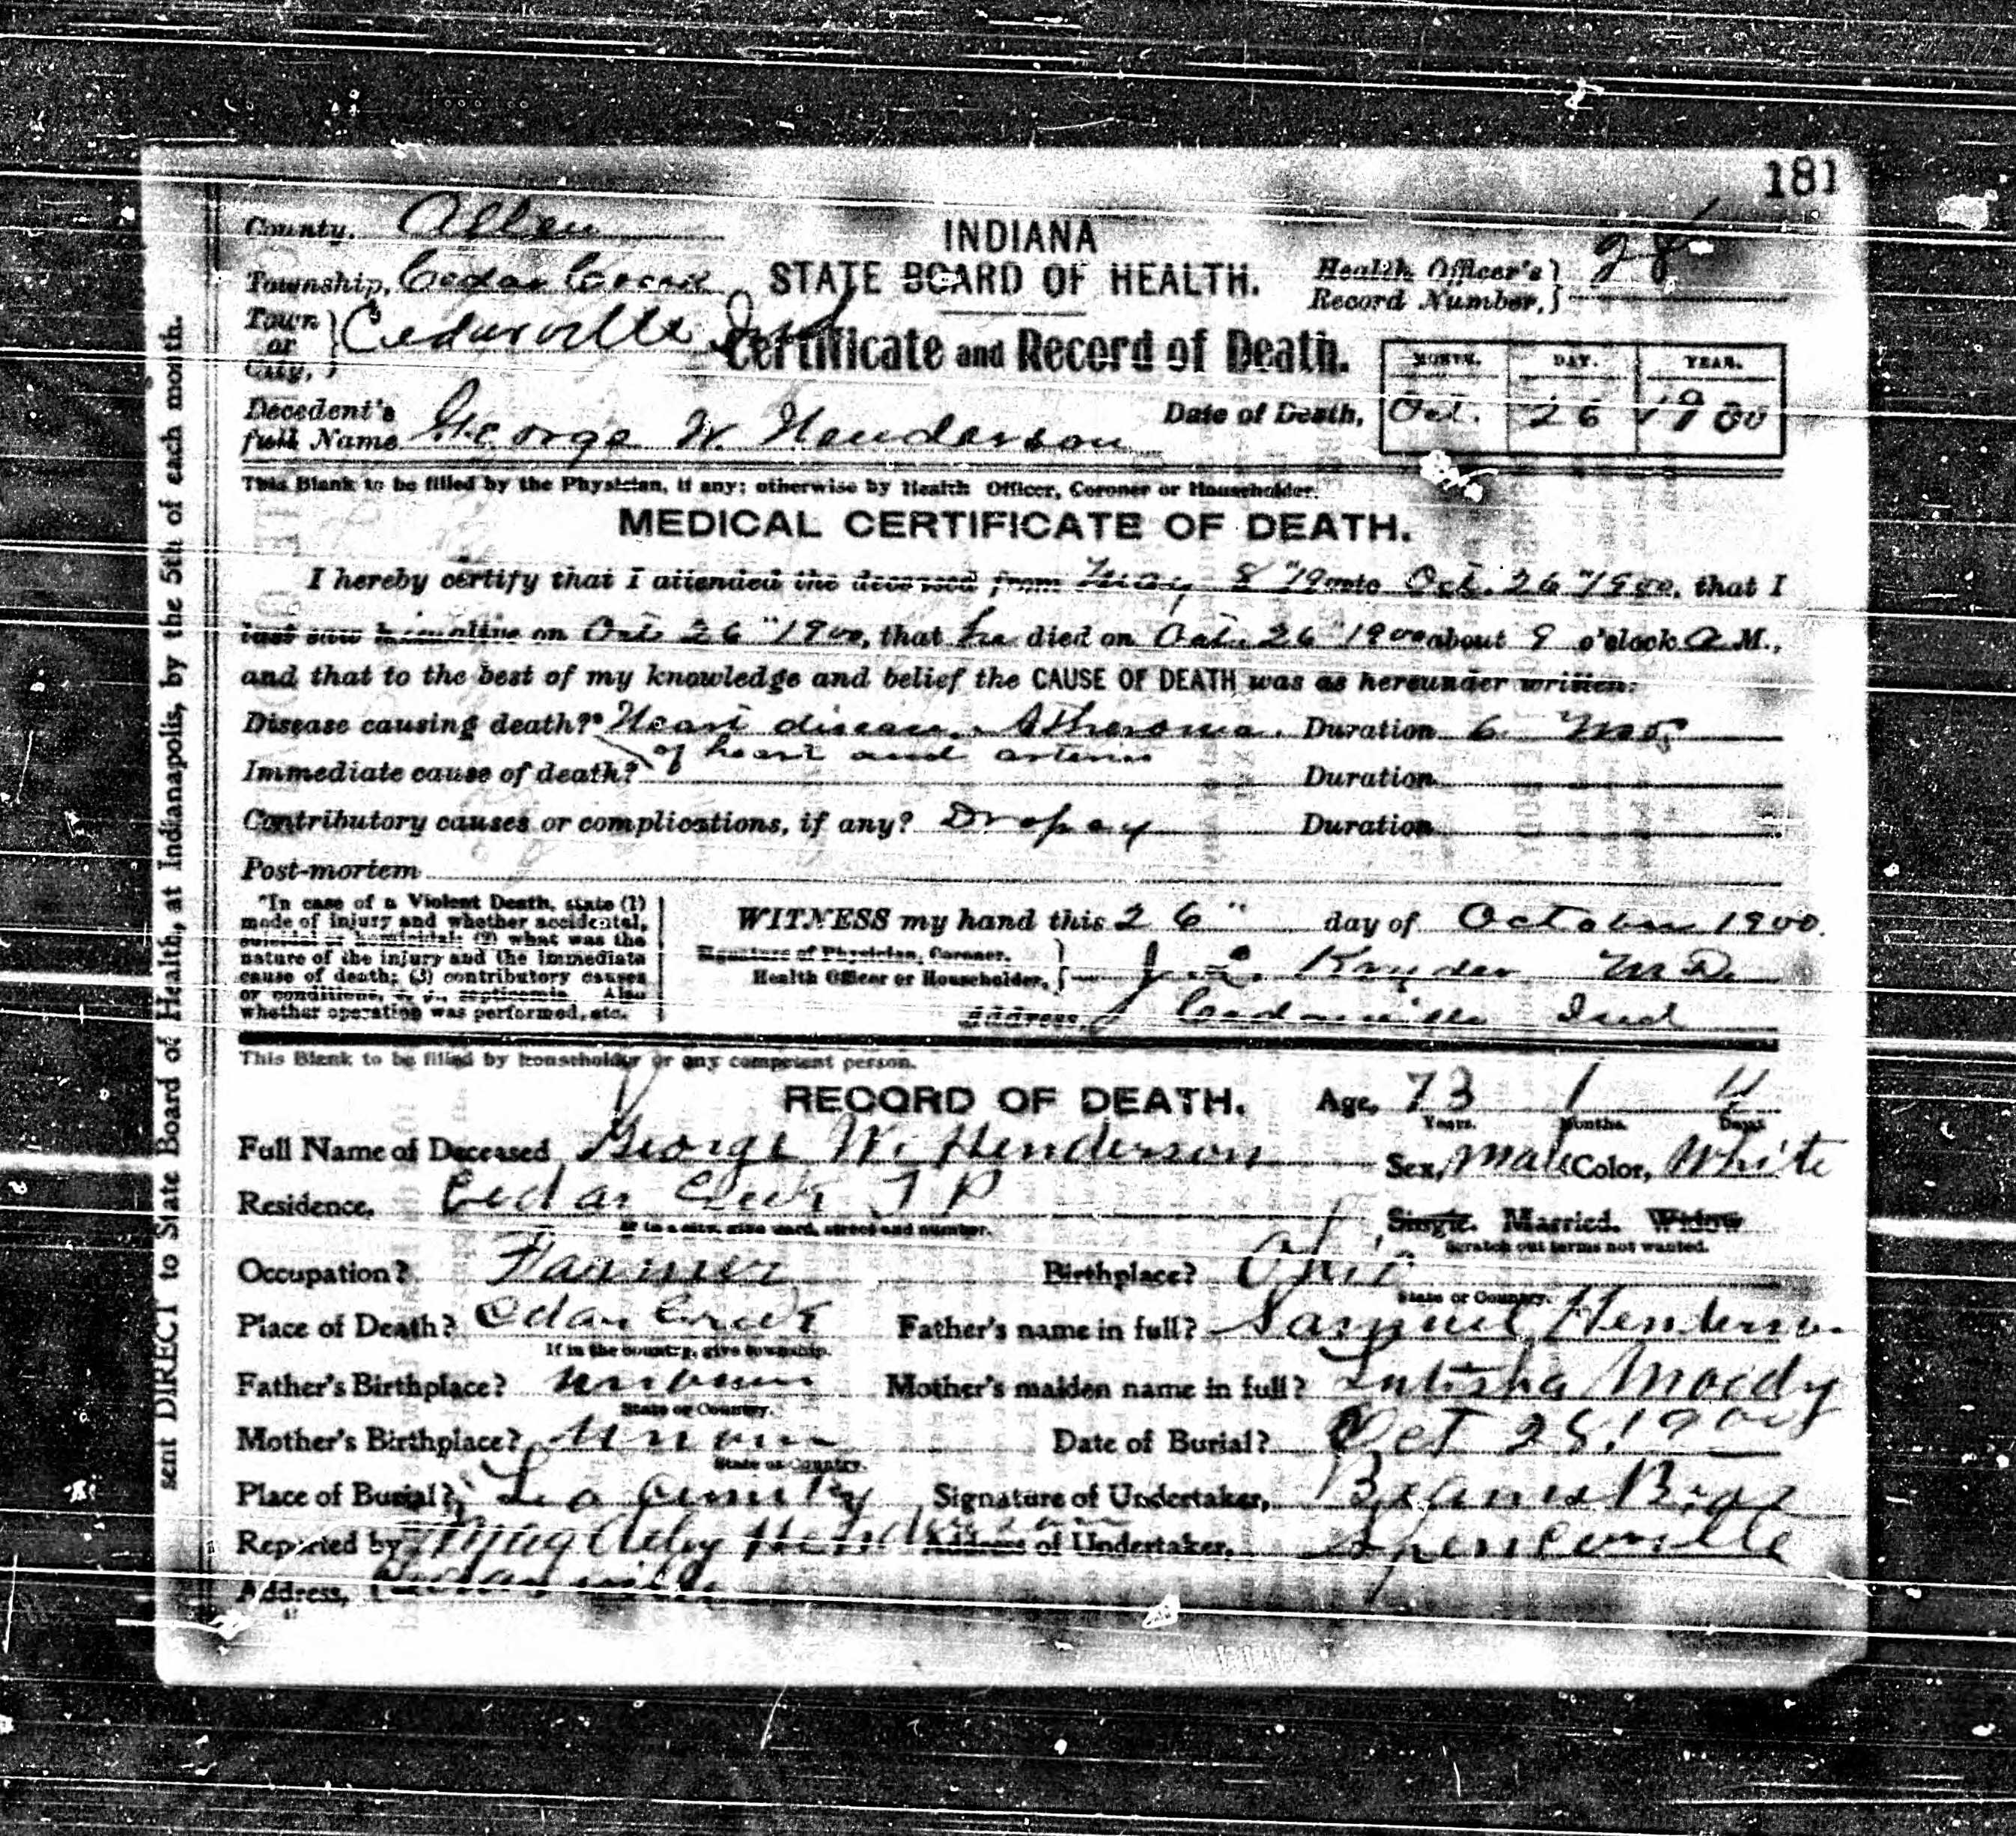 181
County, Allen
INDIANA
Township, Cedar Creek
STATE BOARD OF HEALTH.
Health Officer's Record Number, 28
Town or City, Cedarville Ind
Certificate and Record of Death.
MONTH. DAY. YEAR.
Decedent's full Name George W. Henderson
Date of Death, Oct. 26 1900
This Blank to be filled by the Physician, if any; otherwise by Health Officer, Coroner or Householder.
MEDICAL CERTIFICATE OF DEATH.
I hereby certify that I attended the deceased from 8" 1900 to Oct. 26" 1900, that I
last saw him alive on Oct 26" 1900, that he died on Oct. 26" 1900 about 9 o'clock A M.,
and that to the best of my knowledge and belief the CAUSE OF DEATH was as hereunder written:
Disease causing death?* Heart disease. Atheroma. Duration 6 Mos
of heart and arteries
Immediate cause of death? Duration
Contributory causes or complications, if any? Dropsy Duration
Post-mortem
*In case of a Violent Death, state (1)
mode of injury and whether accidental,
suicidal or homicidal; (2) what was the
nature of the injury and the immediate
cause of death; (3) contributory causes
or conditions, e. g., septicemia. Also
whether operation was performed, etc.
WITNESS my hand this 26" day of October 1900.
Signature of Physician, Coroner,
Health Officer or Householder, J. L. Kryder M D.
Address, Cedarville Ind
This Blank to be filled by householder or any competent person.
RECORD OF DEATH. Age, 73 1 11
Years. Months. Days.
Full Name of Deceased George W. Henderson Sex, Male Color, White
Residence, Cedar Creek T P
If in a city, give ward, street and number.
Single. Married. Widow
Scratch out terms not wanted.
Occupation? Farmer Birthplace? Ohio
State or Country.
Place of Death? Cedar Creek Father's name in full? Samuel Henderson
If in the country, give township.
Father's Birthplace? Mother's maiden name in full? Moody
State or Country.
Mother's Birthplace? Date of Burial? Oct 28, 1900
State or Country.
Place of Burial? Leo Cemetry Signature of Undertaker, Beams Bros
Reported by Henderson Address of Undertaker, Spencerville
Address, Cedarville
sent DIRECT to State Board of Health, at Indianapolis, by the 5th of each month.